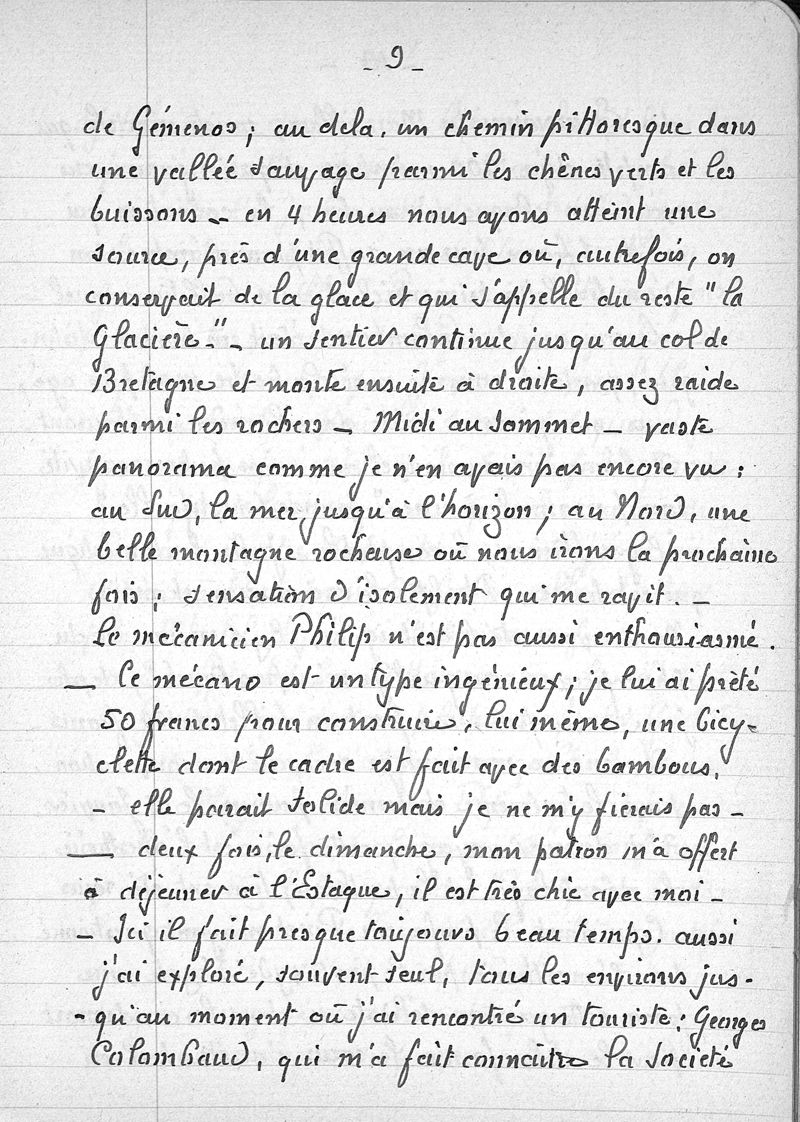 - 9 -
de Gémenos ; au dela, un chemin pittoresque dans
une valleé sauvage parmi les chênes verts et les
buissons - en 4 heures nous avons atteint une
source, près d'une grande cave où, autrefois, on
conservait de la glace et qui s'appelle du reste "la
Glacière." - un sentier continue jusqu'au col de
Bretagne et monte ensuite à droite, assez raide
parmi les rochers - Midi au sommet - vaste
panorama comme je n'en avais pas encore vu :
au Sud, la mer jusqu'à l'horizon ; au Nord, une
belle montagne rocheuse où nous irons la prochaine
fois ; sensation d'isolement qui me ravit. -
Le mécanicien Philip n'est pas aussi enthousiasmé.
- Ce mécano est un type ingénieux ; je lui ai prêté
50 francs pour construire, lui même, une bicy-
clette dont le cadre est fait avec des bambous,
- elle parait solide mais je ne m'y fierais pas -
- deux fois, le dimanche, mon patron m'a offert
à déjeuner à l'Estaque, il est très chic avec moi -
- Ici il fait presque toujours beau temps. aussi
j'ai exploré, souvent seul, tous les environs jus-
-qu'au moment où j'ai rencontré un touriste : Georges
Colombaud, qui m'a fait connaître la Société